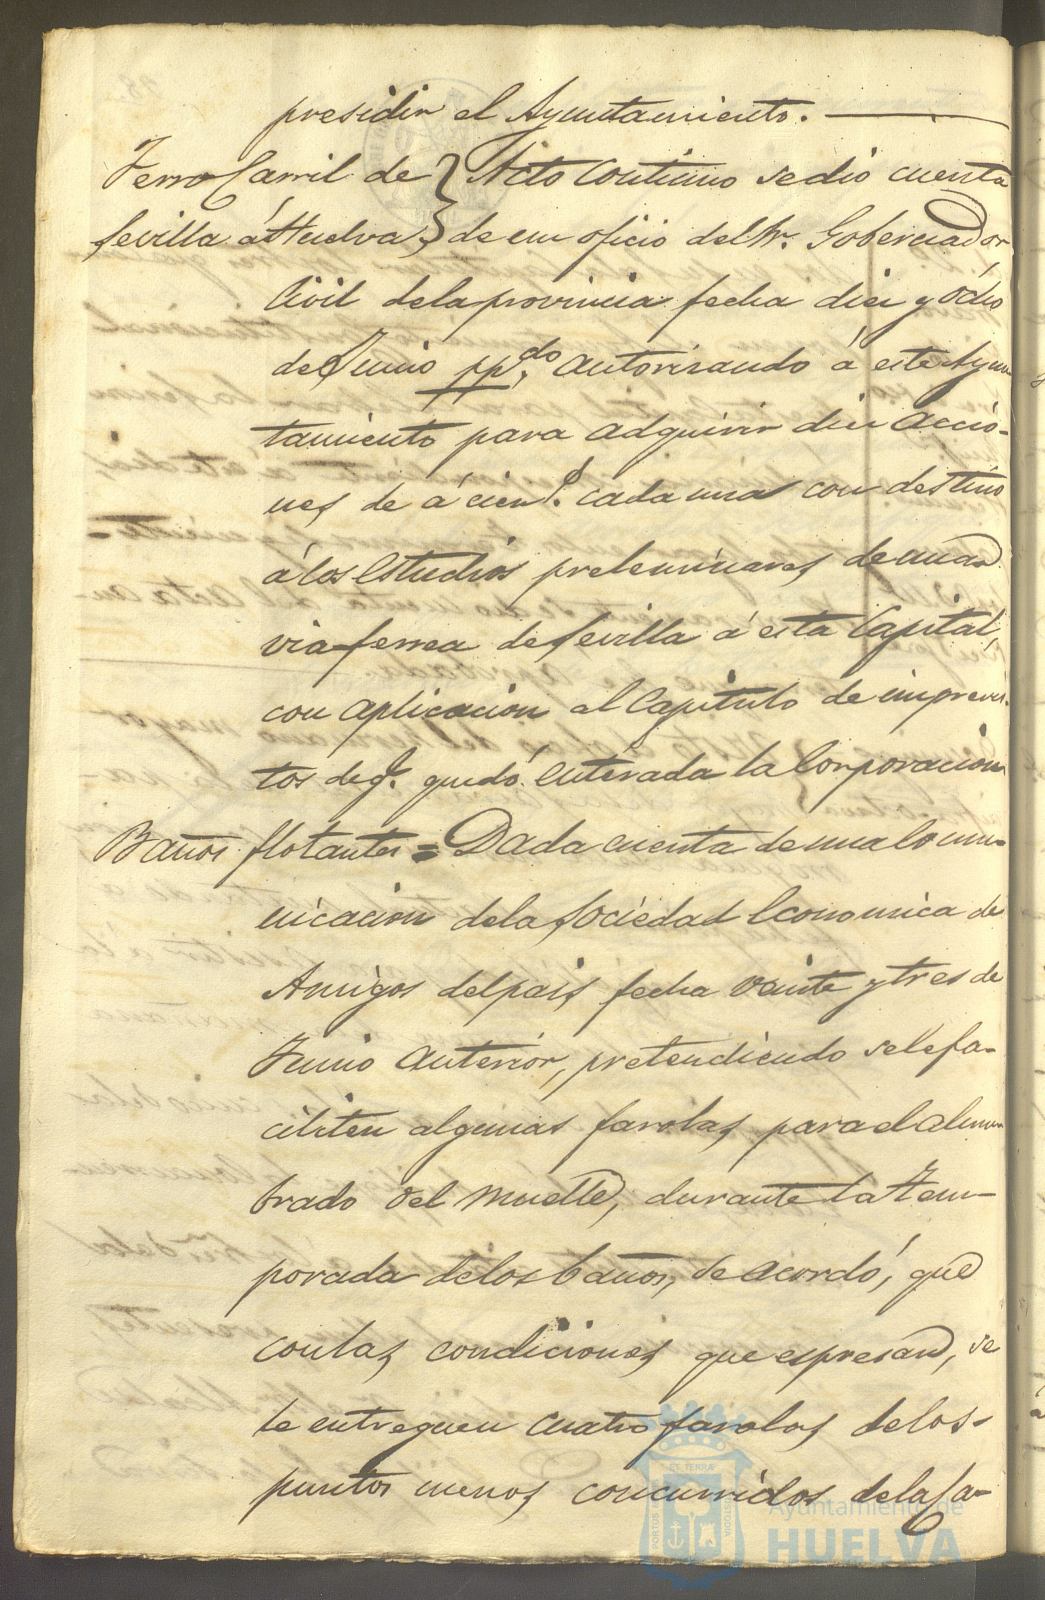 presidir el Ayuntamiento.
Ferro Carril de } Acto continuo se dio cuenta
Sevilla á Huelva } de un oficio del Sr. Gobernador
Civil de la provincia fecha diez y ocho
de Junio pp.do autorizando á este Ayun
tamiento para adquirir diez accio-
nes de á cien cada una con destino
á los estudios preleminares de una
via ferrea de Sevilla á esta Capital,
con aplicacion al Capitulo de imprevis-
tos de q.e quedó enterada la Corporacion
Baños flotantes = Dada cuenta de una Comu-
nicacion de la Sociedad Economica de
Amigos del pais fecha veinte y tres de
Junio anterior, pretendiendo se le fa-
ciliten algunas farolas para el alum
brado del muelle, durante la tem-
porada de los baños, se acordó, que
con las condiciones que espresan, se
le entreguen cuatro farolas de los
puntos menos concurridos de la Ca-
Ayuntamiento de
HUELVA